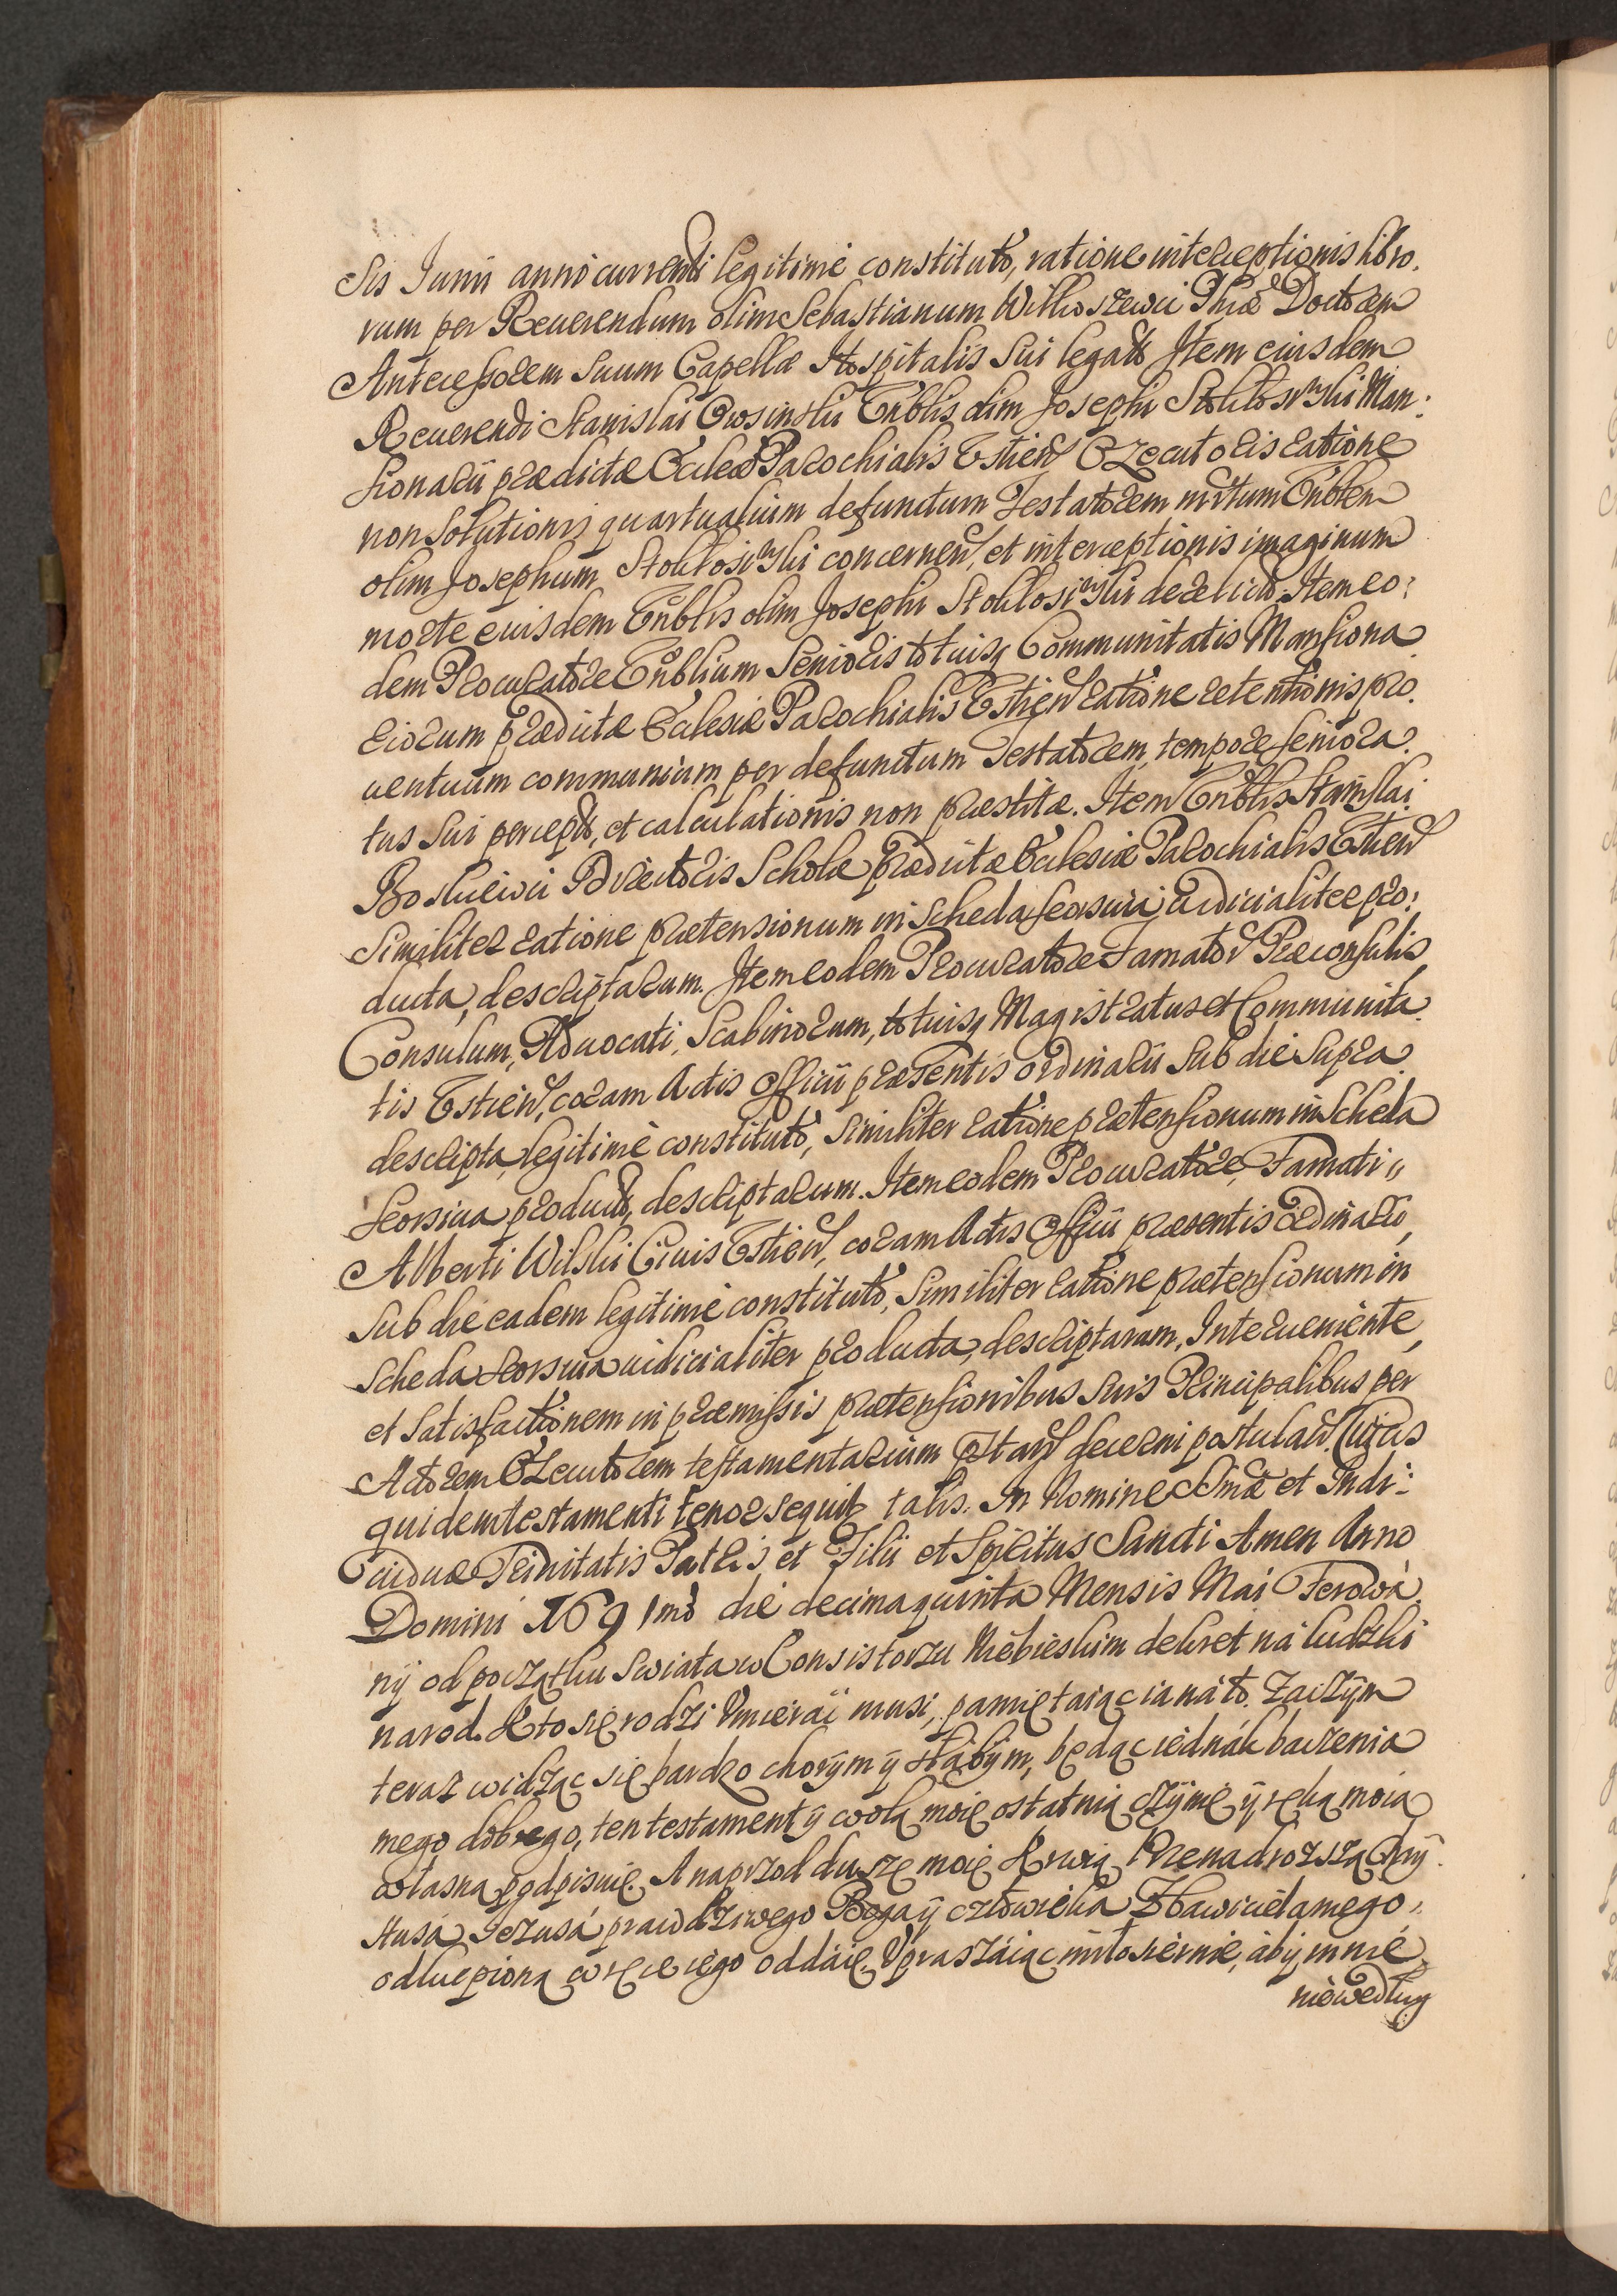 sis Iunii anni currenti legitime constituto, ratione interceptionis libro.
rum per Reuerendum olim Sebastianum Wilkoszewic Phiæ Doctorem
Antecessorem suum Capellæ Hospitalis sui legato Item eiusdem
Reuerendi Stanislai Owsinski Enblis olim Josephi Stokłosiński Man:
sionarii prædictæ Eccleæ Parochialis Estien Exequtoris ratione
non solutionis quartualium defunctum Testatorem mltum Enblem
olim Josephum Stokłosinski concernen, et interceptionis imaginum
morte eiusdem Enblis olim Josephi Stokłosinski derelicto. Item eo:
dem Procuratore Enblium Senioris totiusq Communitatis Mansiona
riorum prædictæ Ecclesiæ Parochialis Estien ratione retentionis pro.
uentuum communium per defunctum Testatorem, tempore seniora.
tus sui percepto, et calculationis non præstitæ. Item Enblis Stanislai
Directoris Scholæ prædictæ Ecclesiæ Parochialis Estien
similiter ratione prætensionum in scheda seorsiua iudicialiter pro:
ducta, descriptarum. Item eodem Procuratore Famator Præconsulis
Consulum, Aduocati, Scabinorum, totiusq Magistratus et Communita
tis Estien, coram Actis Officii præsentis ordinarii sub die supra
descripta, legitimè constituto, similiter ratione prætensionum in scheda
seorsiua producto, descriptarum. Item eodem Procuratore, Famati„
Alberti Wilski Ciuis Estien, coram Actis Officii præsentis ordinario,
sub die eadem legitime constituto, similiter ratione prætensionum in
scheda seorsiua iudicialiter producta, descriptarum, Interueniente,
et satisfactionem in præmissis prætensionibus suis Principalibus per
Actorem Executorem testamentarium præstari decerni postulan. Cuius
quidem testamenti tenor sequitr talis. In Nomine SSmæ et Indi:
uiduæ Trinitatis Patris, et Filii et Spiritus Sancti Amen Anno
Domini 1691mo die decima quinta Mensis Mai Ferowá
ny od początku swiata w Consistorzu Niebieskim dekret ná ludzki
narod. Kto się rodzi Vmieráć musi, pamiętaiąc ia ná to. Zaczym
teraz widząc się bardzo chorym ÿ słábym, będąc iednák baczenia
mego dobrego, ten testament ÿ wolą moię ostatnią czÿnię ÿ ręką moią
własną podpisuię. A naprzod duszę moię Krwią Przenadrozszą Chrÿ
stusá Iezusá prawdziwego Boga ÿ człowieka Zbawiciela mego„
odkupioną w ręce iego oddáię. Vpraszáiąc miłosiernie, áby mnie
niewedług